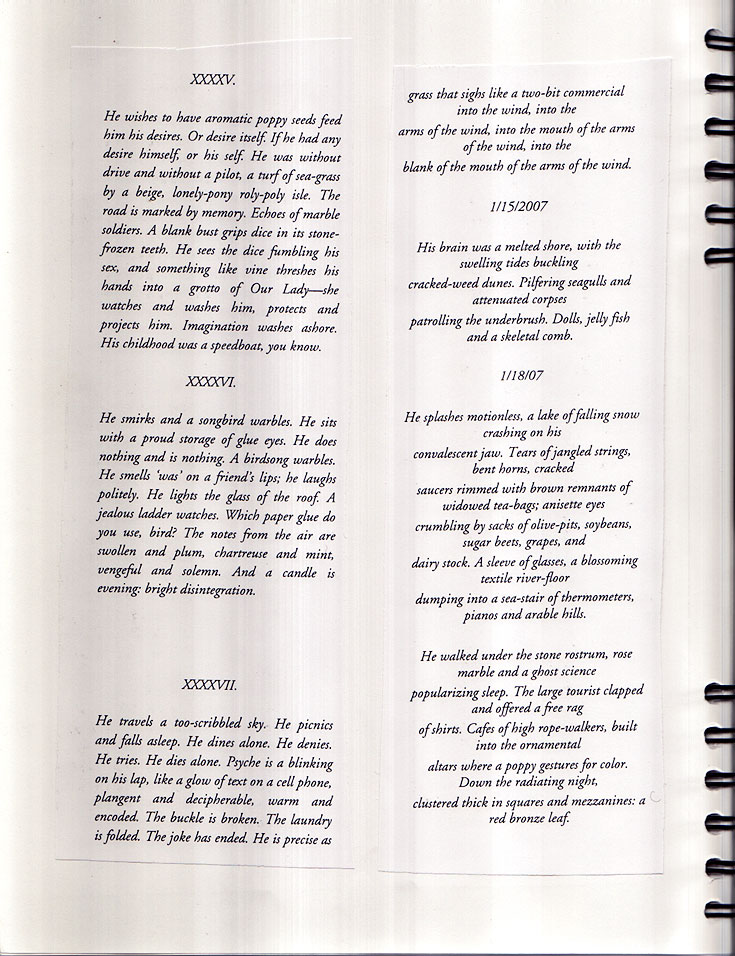 XXXXV.
He wishes to have aromatic poppy seeds feed
him his desires. Or desire itself. If he had any
desire himself, or his self. He was without
drive and without a pilot, a turf of sea-grass
by a beige, lonely-pony roly-poly isle. The
road is marked by memory. Echoes of marble
soldiers. A blank bust grips dice in its stone-
frozen teeth. He sees the dice fumbling his
sex, and something like vine threshes his
hands into a grotto of Our Lady—she
watches and washes him, protects and
projects him. Imagination washes ashore.
His childhood was a speedboat, you know.
XXXXVI.
He smirks and a songbird warbles. He sits
with a proud storage of glue eyes. He does
nothing and is nothing. A birdsong warbles.
He smells 'was' on a friend's lips; he laughs
politely. He lights the glass of the roof. A
jealous ladder watches. Which paper glue do
you use, bird? The notes from the air are
swollen and plum, chartreuse and mint,
vengeful and solemn. And a candle is
evening: bright disintegration.
XXXXVII.
He travels a too-scribbled sky. He picnics
and falls asleep. He dines alone. He denies.
He tries. He dies alone. Psyche is a blinking
on his lap, like a glow of text on a cell phone,
plangent and decipherable, warm and
encoded. The buckle is broken. The laundry
is folded. The joke has ended. He is precise as
grass that sighs like a two-bit commercial
into the wind, into the
arms of the wind, into the mouth of the arms
of the wind, into the
blank of the mouth of the arms of the wind.
1/15/2007
His brain was a melted shore, with the
swelling tides buckling
cracked-weed dunes. Pilfering seagulls and
attenuated corpses
patrolling the underbrush. Dolls, jelly fish
and a skeletal comb.
1/18/07
He splashes motionless, a lake of falling snow
crashing on his
convalescent jaw. Tears of jangled strings,
bent horns, cracked
saucers rimmed with brown remnants of
widowed tea-bags; anisette eyes
crumbling by sacks of olive-pits, soybeans,
sugar beets, grapes, and
dairy stock. A sleeve of glasses, a blossoming
textile river-floor
dumping into a sea-stair of thermometers,
pianos and arable hills.
He walked under the stone rostrum, rose
marble and a ghost science
popularizing sleep. The large tourist clapped
and offered a free rag
of shirts. Cafes of high rope-walkers, built
into the ornamental
altars where a poppy gestures for color.
Down the radiating night,
clustered thick in squares and mezzanines: a
red bronze leaf.